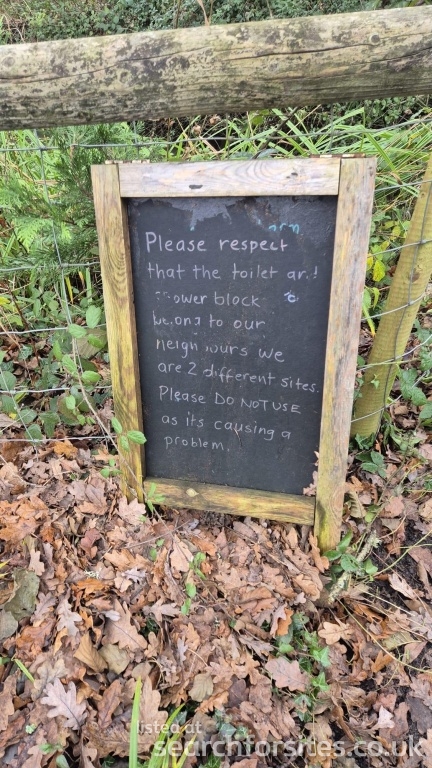 Please respect
that the toilet and
shower block
belong to our
neighbours we
are 2 different sites.
Please DO NOT USE
as its causing a
problem.
listed at
searchforsites.co.uk